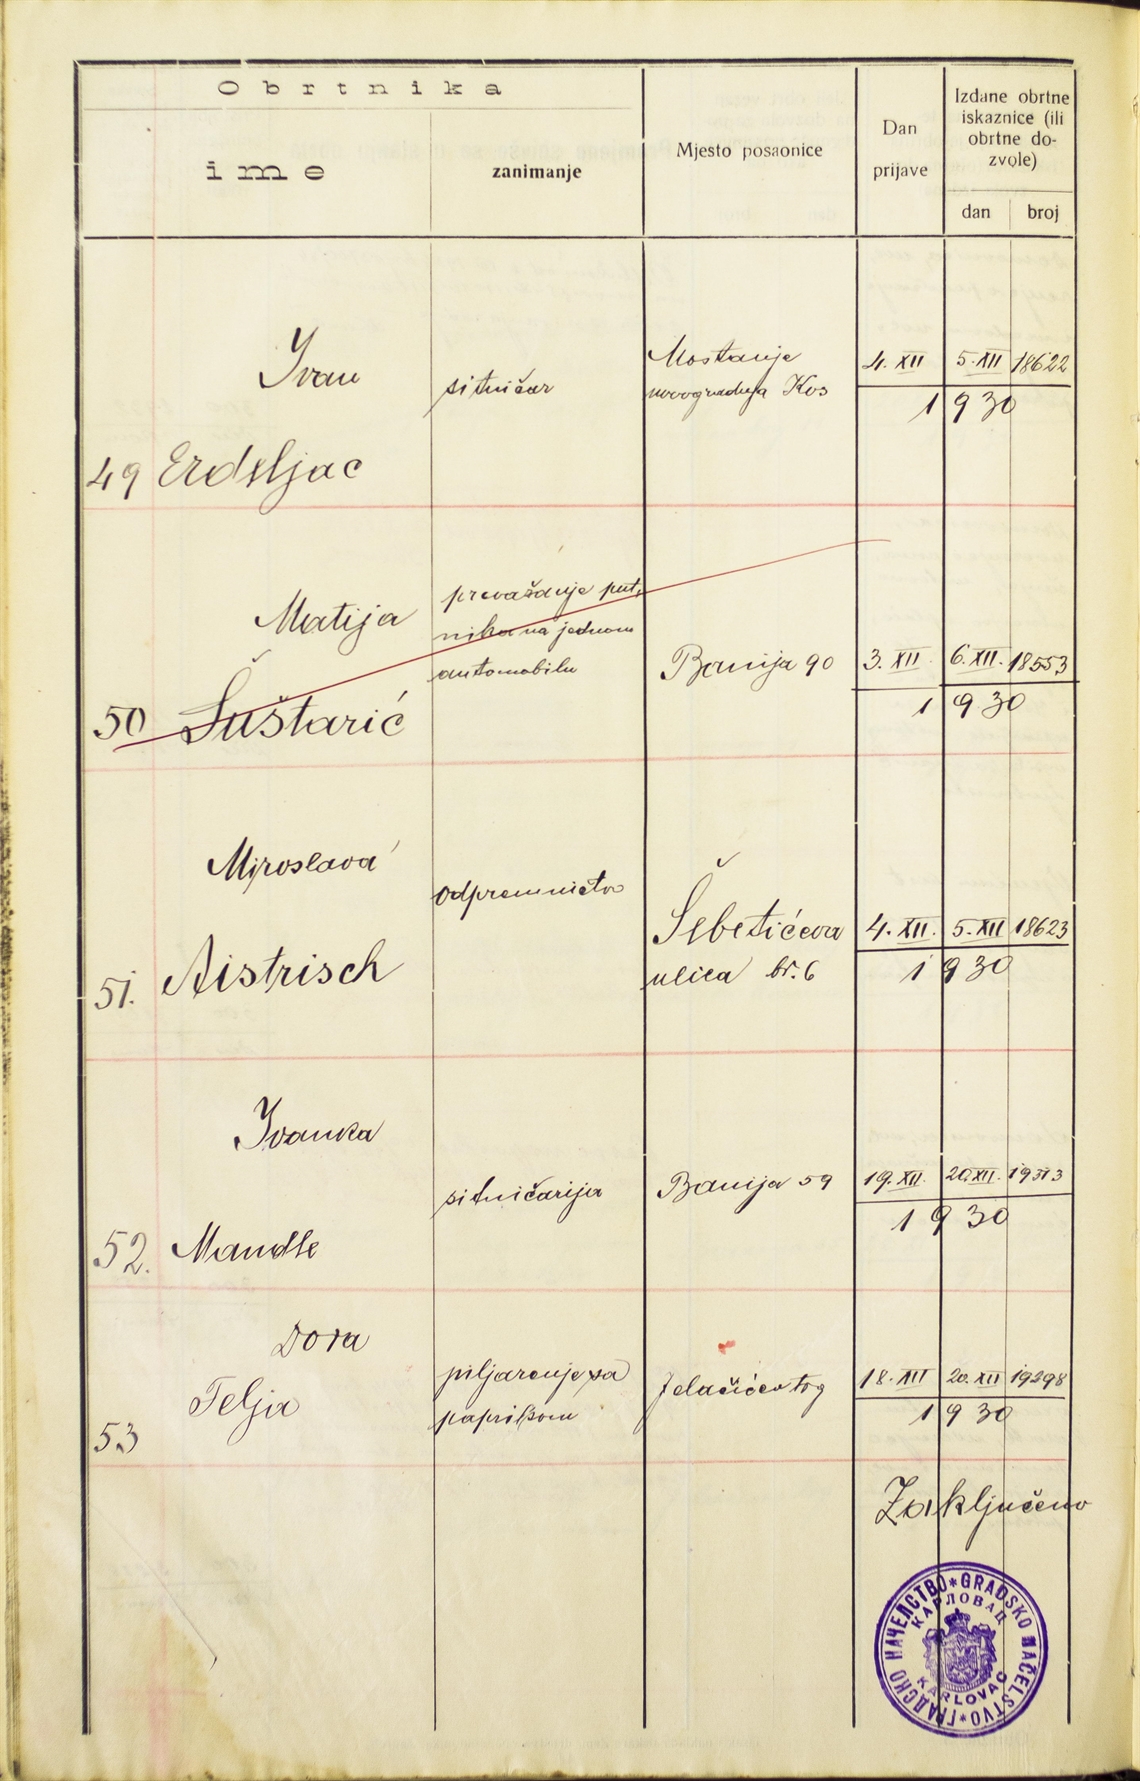 Obrtnika
ime
zanimanje
Mjesto posaonice
Dan
prijave
Izdane obrtne
iskaznice (ili
obrtne do-
zvole)
dan
broj
Ivan
Mostanje
4. XII
5. XII
18622
sitničar
novogradnja Kos
1930
49 Erdeljac
Matija
prevažanje put,
nika na jednom
automobilu
Banija 90
3. XII.
6. XII.
18553
1930
50 Šuštarić
Miroslava
odpremnictvo
Šebetićeva
4. XII.
5. XII
18623
51. Aistrisch
ulica br. 6
1930
Ivanka
sitničarija
Banija 59
19. XII.
20. XII.
1930
52. Mandle
Dora
piljarenje sa
Jelačićev tog
18. XII
20. XII
19298
Telja
paprikom
1930
53
Zaključeno
ГРАДСКО НАЧЕЛСТВО * GRADSKO NAČELSTVO *
КАРЛОВАЦ
KARLOVAC